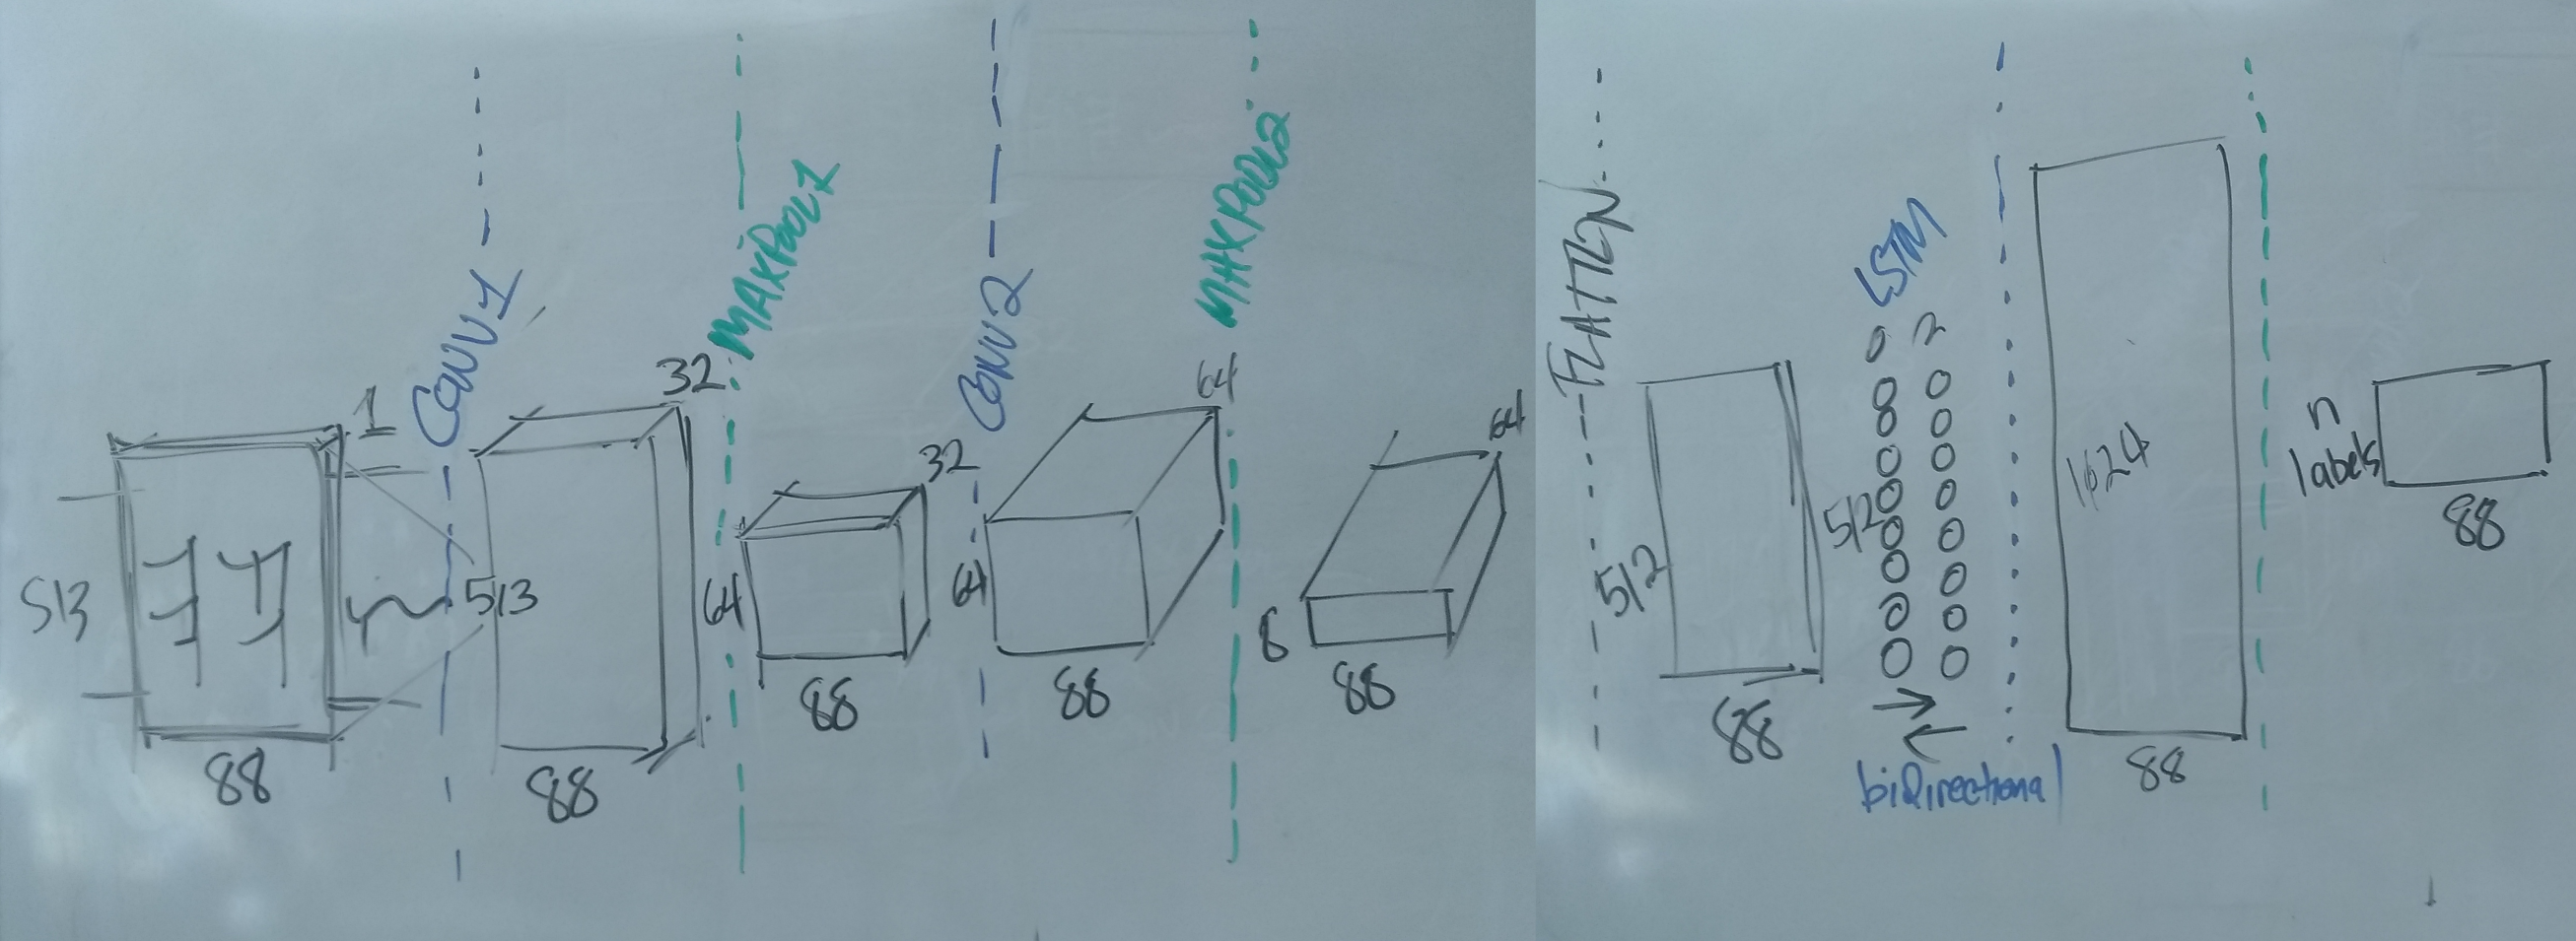 513
88
1
CONV1
513
88
32
MAXPOOL1
64
88
32
CONV2
64
88
64
MAXPOOL2
8
88
64
FLATTEN
512
88
LSTM
512
biDirectional
1024
88
n
labels
88